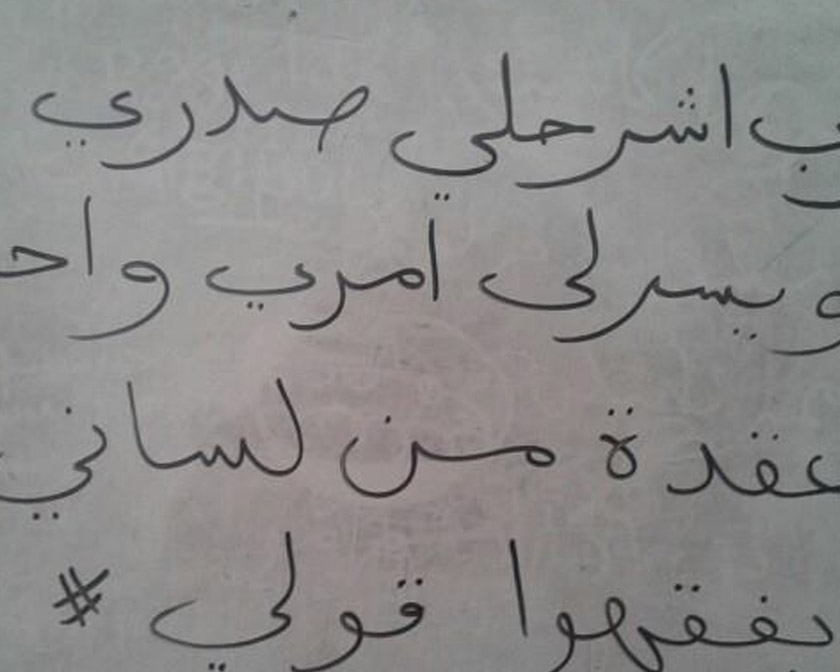 ب اشرحلي صدري
و يسرلي امري واح
عقدة من لساني
يفقهوا قولي #